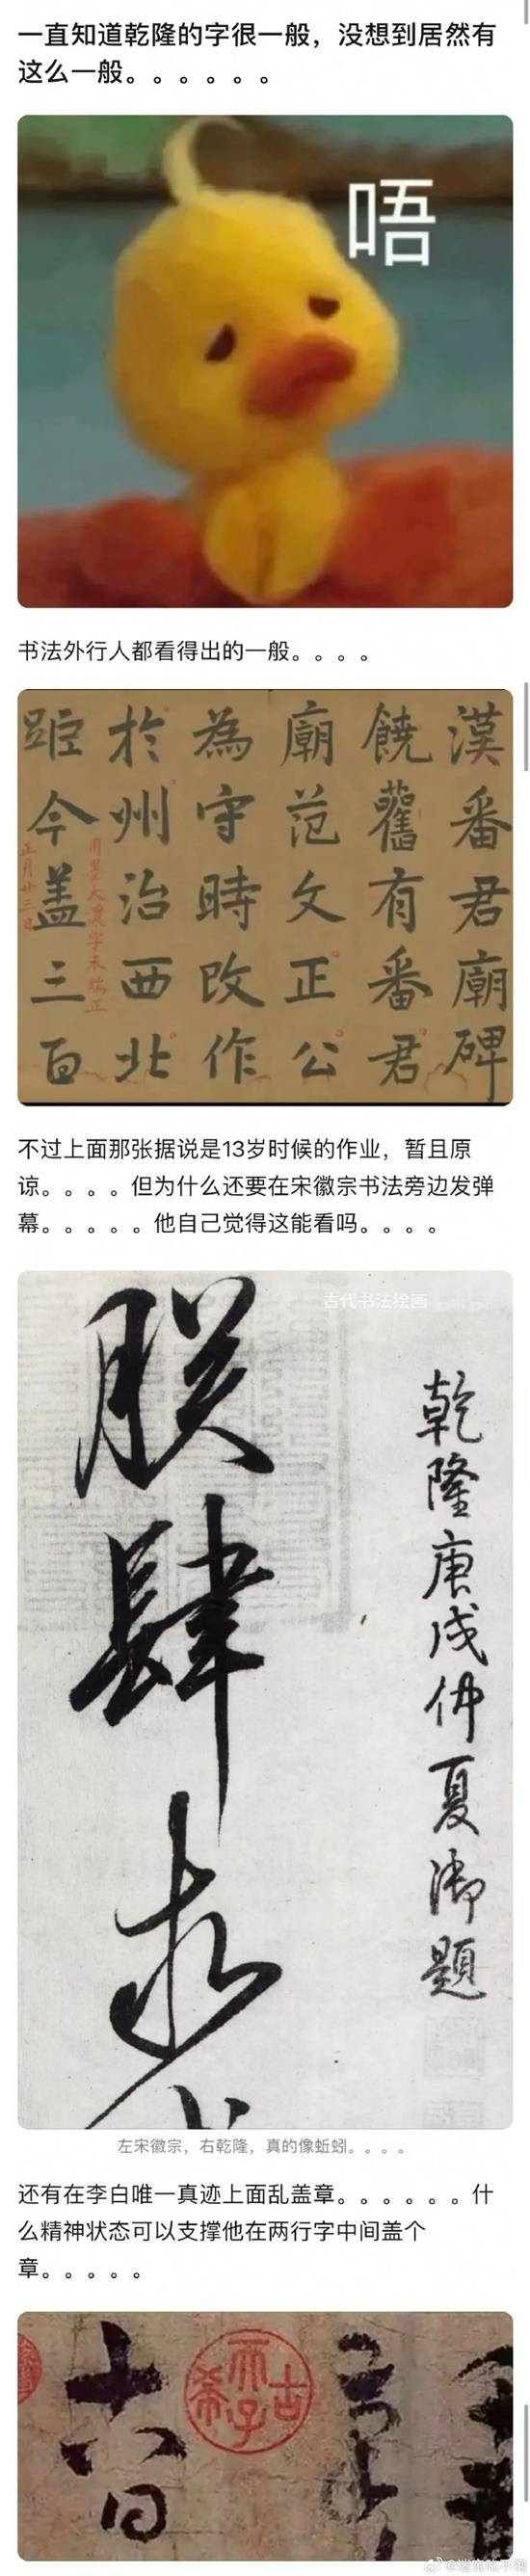 一直知道乾隆的字很一般，没想到居然有
这么一般。。。。。。
唔
书法外行人都看得出的一般。。。。
漢番君廟碑
饒舊有番君
廟范文正公
為守時改作
於州治西北
用墨太濃字未端正
歫今盖三百
正月廿三日
不过上面那张据说是13岁时候的作业，暂且原
谅。。。。但为什么还要在宋徽宗书法旁边发弹
幕。。。。。他自己觉得这能看吗。。。。
古代书法绘画
乾隆庚戌仲夏御題
朕肆求
左宋徽宗，右乾隆，真的像蚯蚓。。。。
还有在李白唯一真迹上面乱盖章。。。。。。什
么精神状态可以支撑他在两行字中间盖个
章。。。。。
古希天子
六日